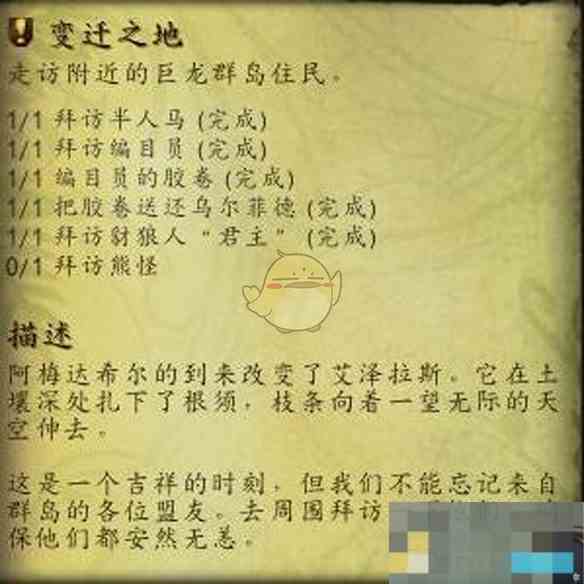 变迁之地
走访附近的巨龙群岛住民。
1/1 拜访半人马 (完成)
1/1 拜访编目员 (完成)
1/1 编目员的胶卷 (完成)
1/1 把胶卷送还乌尔菲德 (完成)
1/1 拜访豺狼人“君主” (完成)
0/1 拜访熊怪
描述
阿梅达希尔的到来改变了艾泽拉斯。它在土
壤深处扎下了根须，枝条向着一望无际的天
空伸去。
这是一个吉祥的时刻，但我们不能忘记来自
群岛的各位盟友。去周围拜访
保他们都安然无恙。